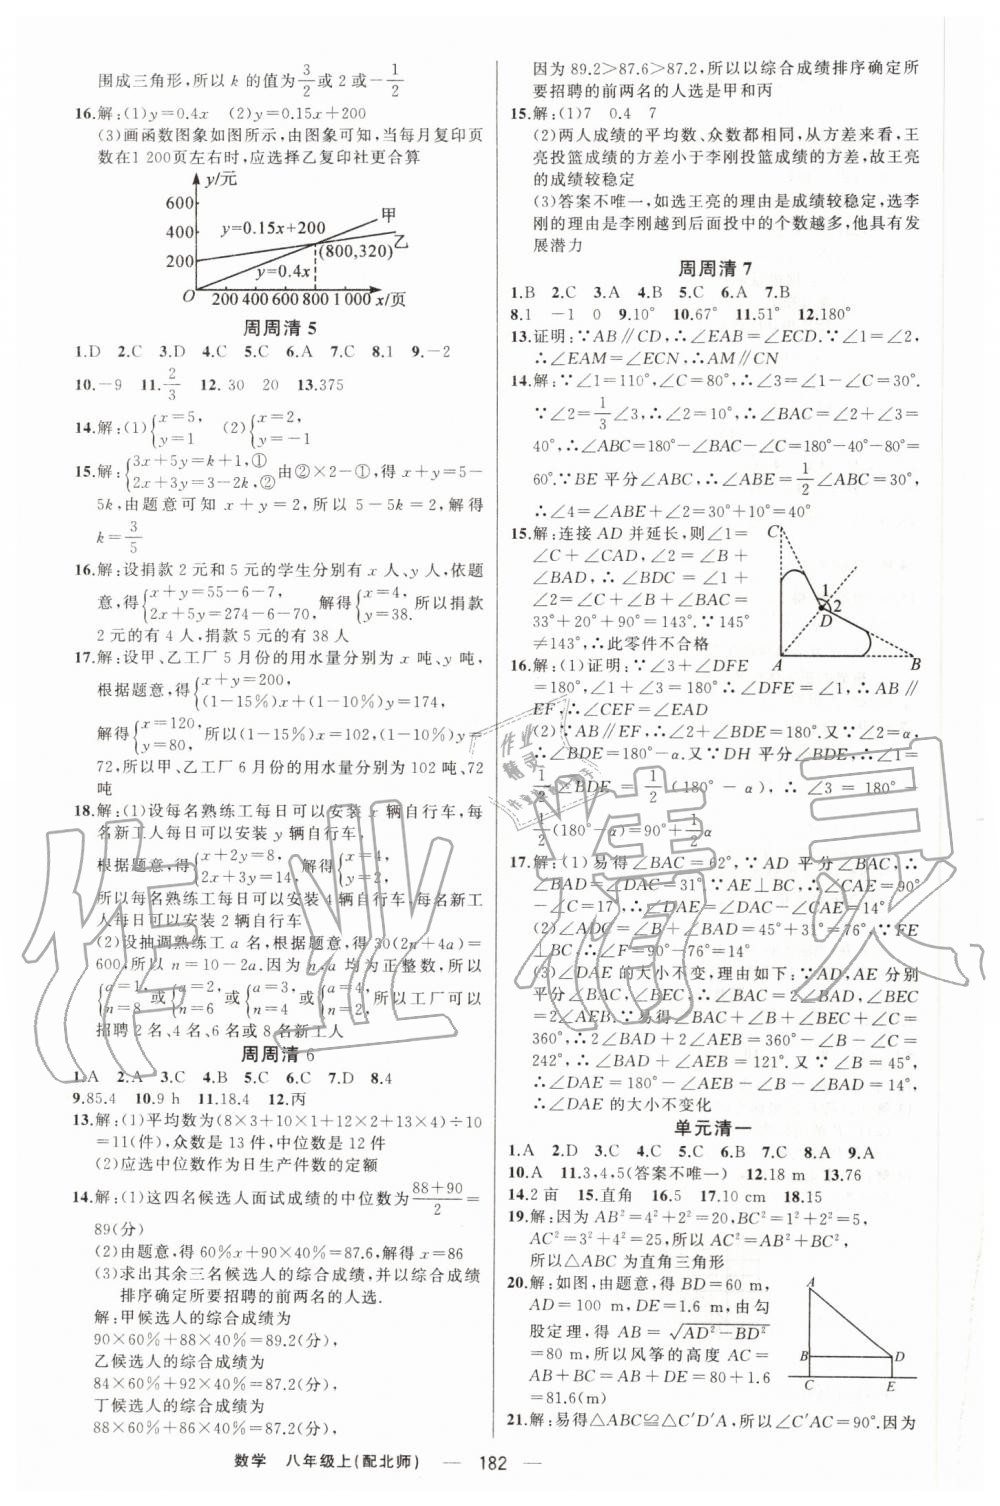 围成三角形,所以 k 的值为3/2或 2 或-1/2
16.解:(1)y=0.4x (2)y=0.15x+200
(3)画函数图象如图所示,由图象可知,当每月复印页
数在1 200页左右时,应选择乙复印社更合算
y/元
600
400
200
y=0.15x+200
甲
乙
(800,320)
y=0.4x
O 200 400 600 800 1 000 x/页
周周清 5
1.D 2.C 3.D 4.C 5.C 6.A 7.C 8.1 9.-2
10.-9 11.2/3 12. 30 20 13.375
14.解:(1){x=5, y=1 (2){x=2, y=-1
15.解:{3x+5y=k+1,① 2x+3y=3-2k,②由②×2-①,得 x+y=5-
5k,由题意可知 x+y=2,所以 5-5k=2,解得
k=3/5
16.解:设捐款 2 元和 5 元的学生分别有 x 人、y 人,依题
意,得{x+y=55-6-7, 2x+5y=274-6-70, 解得{x=4, y=38. 所以捐款
2 元的有 4 人,捐款 5 元的有 38 人
17.解:设甲、乙工厂 5 月份的用水量分别为 x 吨、y 吨,
根据题意,得{x+y=200, (1-15%)x+(1-10%)y=174,
解得{x=120, y=80, 所以(1-15%)x=102,(1-10%)y=
72,所以甲、乙工厂 6 月份的用水量分别为 102 吨、72
吨
18.解:(1)设每名熟练工每日可以安装 x 辆自行车,每
名新工人每日可以安装 y 辆自行车.
根据题意,得{x+2y=8, 2x+3y=14, 解得{x=4, y=2,
所以每名熟练工每日可以安装 4 辆自行车,每名新工
人每日可以安装 2 辆自行车
(2)设抽调熟练工 a 名,根据题意,得 30(2n+4a)=
600,所以 n=10-2a.因为 n、a 均为正整数,所以
{a=1, n=8 或{a=2, n=6 或{a=3, n=4 或{a=4, n=2. 所以工厂可以
招聘 2 名、4 名、6 名或 8 名新工人
周周清 6
1.A 2.A 3.C 4.B 5.C 6.C 7.D 8.4
9.85.4 10.9 h 11.18.4 12.丙
13.解:(1)平均数为(8×3+10×1+12×2+13×4)÷10
=11(件),众数是 13 件,中位数是 12 件
(2)应选中位数作为日生产件数的定额
14.解:(1)这四名候选人面试成绩的中位数为(88+90)/2=
89(分)
(2)由题意,得 60%x+90×40%=87.6,解得 x=86
(3)求出其余三名候选人的综合成绩,并以综合成绩
排序确定所要招聘的前两名的人选.
解:甲候选人的综合成绩为
90×60%+88×40%=89.2(分),
乙候选人的综合成绩为
84×60%+92×40%=87.2(分),
丁候选人的综合成绩为
88×60%+86×40%=87.2(分),
因为 89.2>87.6>87.2,所以以综合成绩排序确定所
要招聘的前两名的人选是甲和丙
15.解:(1)7 0.4 7
(2)两人成绩的平均数、众数都相同,从方差来看,王
亮投篮成绩的方差小于李刚投篮成绩的方差,故王亮
的成绩较稳定
(3)答案不唯一,如选王亮的理由是成绩较稳定,选李
刚的理由是李刚越到后面投中的个数越多,他具有发
展潜力
周周清 7
1.B 2.C 3.A 4.B 5.C 6.A 7.B
8.1 -1 0 9.10° 10.67° 11.51° 12.180°
13.证明:∵AB∥CD,∴∠EAB=∠ECD.∵∠1=∠2,
∴∠EAM=∠ECN,∴AM∥CN
14.解:∵∠1=110°,∠C=80°,∴∠3=∠1-∠C=30°.
∵∠2=1/3∠3,∴∠2=10°,∴∠BAC=∠2+∠3=
40°,∴∠ABC=180°-∠BAC-∠C=180°-40°-80°=
60°.∵BE 平分∠ABC,∴∠ABE=1/2∠ABC=30°,
∴∠4=∠ABE+∠2=30°+10°=40°
15.解:连接 AD 并延长,则∠1=
∠C+∠CAD,∠2=∠B+
∠BAD,∴∠BDC=∠1+
∠2=∠C+∠B+∠BAC=
33°+20°+90°=143°.∵145°
≠143°,∴此零件不合格
C
1
2
D
A
B
16.解:(1)证明:∵∠3+∠DFE
=180°,∠1+∠3=180°∴∠DFE=∠1,∴AB∥
EF,∴∠CEF=∠EAD
(2)∵AB∥EF,∴∠2+∠BDE=180°.又∵∠2=α,
∴∠BDE=180°-α.又∵DH 平分∠BDE,∴∠1=
1/2∠BDE=1/2(180°-α),∴∠3=180°-
1/2(180°-α)=90°+1/2α
17.解:(1)易得∠BAC=62°,∵AD 平分∠BAC,∴
∠DAC=31°.∵AE⊥BC,∴∠CAE=90°
-∠C=17°,∴∠DAE=∠DAC-∠CAE=14°
(2)∠ADC=∠B+∠BAD=45°+31°=76°,∵FE
⊥BC,∴∠F=90°-76°=14°
(3)∠DAE 的大小不变,理由如下:∵AD,AE 分别
平分∠BAC,∠BEC,∴∠BAC=2∠BAD,∠BEC
=2∠AEB.∵易得∠BAC+∠B+∠BEC+∠C=
360°,∴2∠BAD+2∠AEB=360°-∠B-∠C=
242°,∴∠BAD+∠AEB=121°.又∵∠B=45°,
∴∠DAE=180°-∠AEB-∠B-∠BAD=14°,
∠DAE 的大小不变化
单元清一
1.A 2.D 3.C 4.C 5.C 6.C 7.B 8.A 9.A
10.A 11.3,4,5(答案不唯一) 12.18 m 13.76
14.2 亩 15.直角 16.5 17.10 cm 18.15
19.解:因为 AB²=4²+2²=20,BC²=1²+2²=5,
AC²=3²+4²=25,所以 AC²=AB²+BC²,
所以△ABC 为直角三角形
20.解:如图,由题意,得 BD=60 m,
AD=100 m,DE=1.6 m,由勾
股定理,得 AB=√(AD²-BD²)
=80 m,所以风筝的高度 AC=
AB+BC=AB+DE=80+1.6
=81.6(m)
A
B
D
C
E
21.解:易得△ABC≌△C′D′A,所以∠C′AC=90°.因为
数学 八年级上(配北师) — 182 —
作业精灵